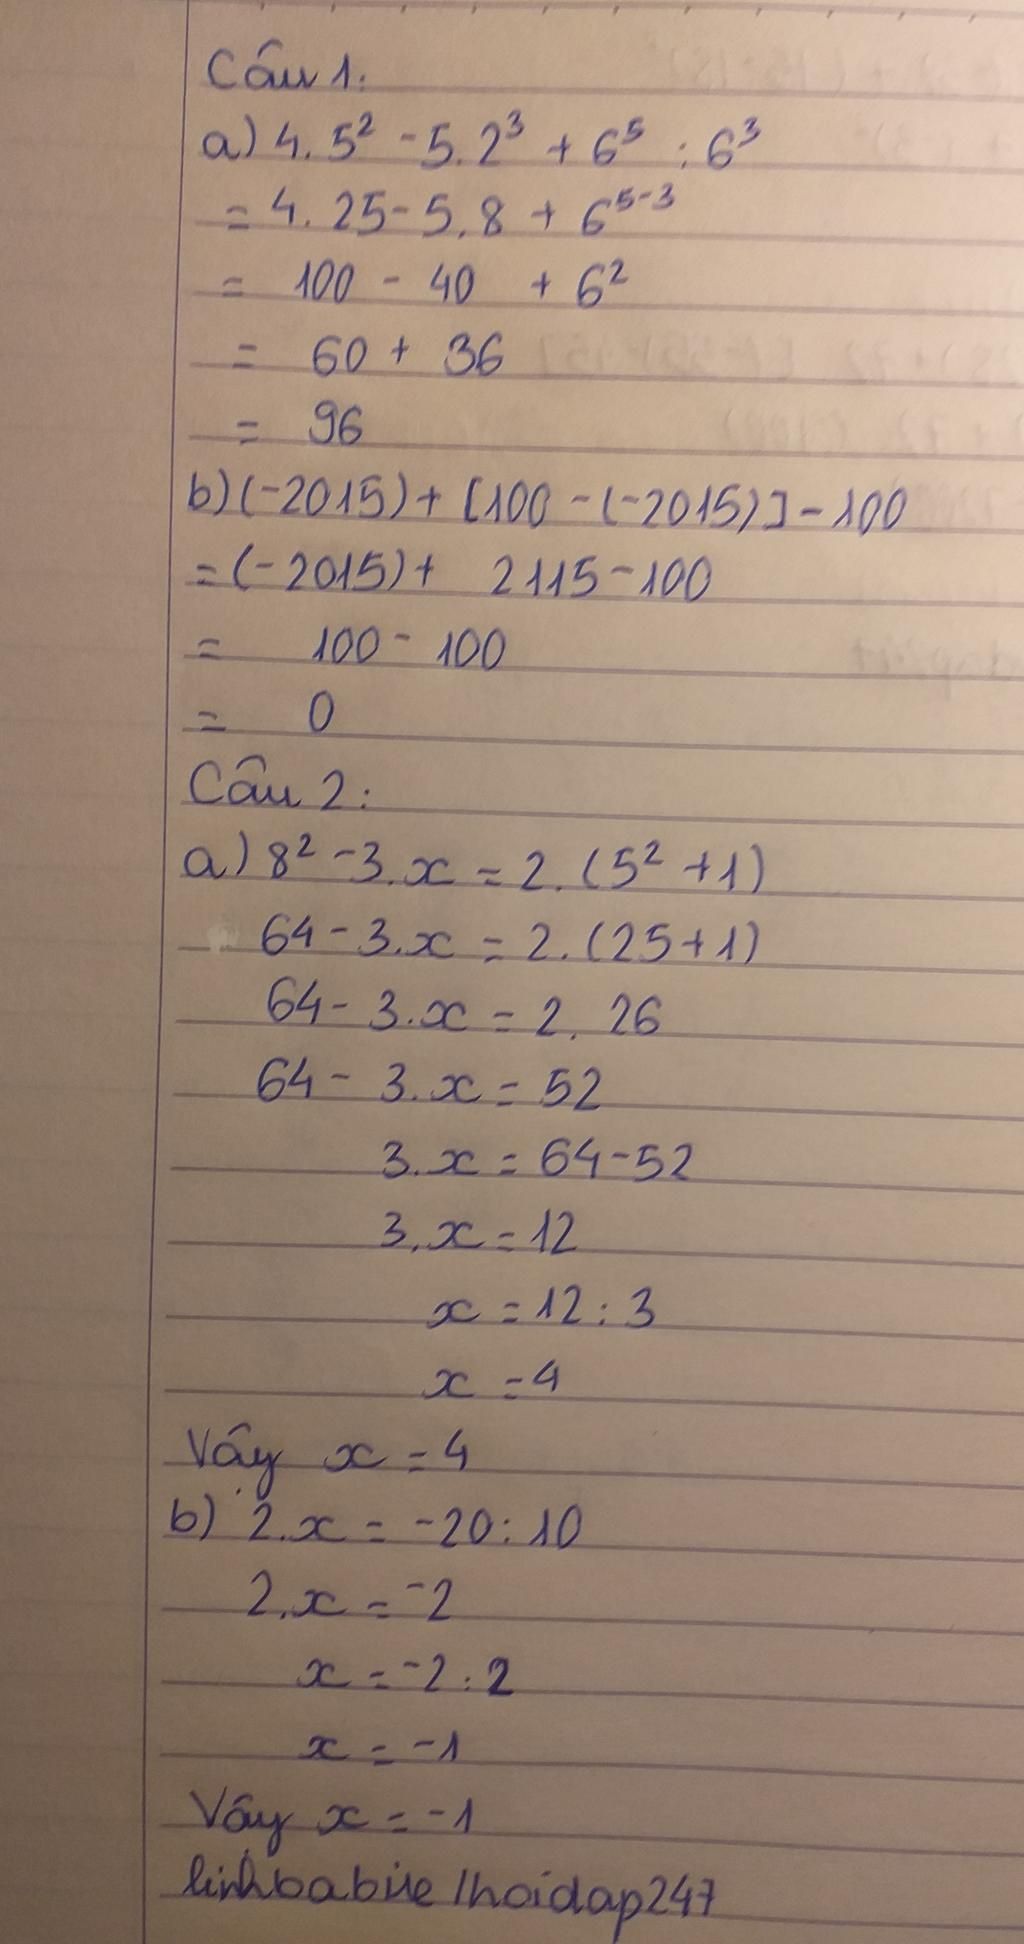 Câu 1:
a) 4. 5² - 5. 2³ + 6⁵ : 6³
= 4. 25 - 5. 8 + 6⁵⁻³
= 100 - 40 + 6²
= 60 + 36
= 96
b) (-2015) + [100 - (-2015)] - 100
= (-2015) + 2115 - 100
= 100 - 100
= 0
Câu 2:
a) 8² - 3. x = 2. (5² + 1)
64 - 3. x = 2. (25 + 1)
64 - 3. x = 2. 26
64 - 3. x = 52
3. x = 64 - 52
3. x = 12
x = 12 : 3
x = 4
Vậy x = 4
b) 2. x = -20 : 10
2. x = -2
x = -2 : 2
x = -1
Vây x = -1
linhbabie/hoidap247